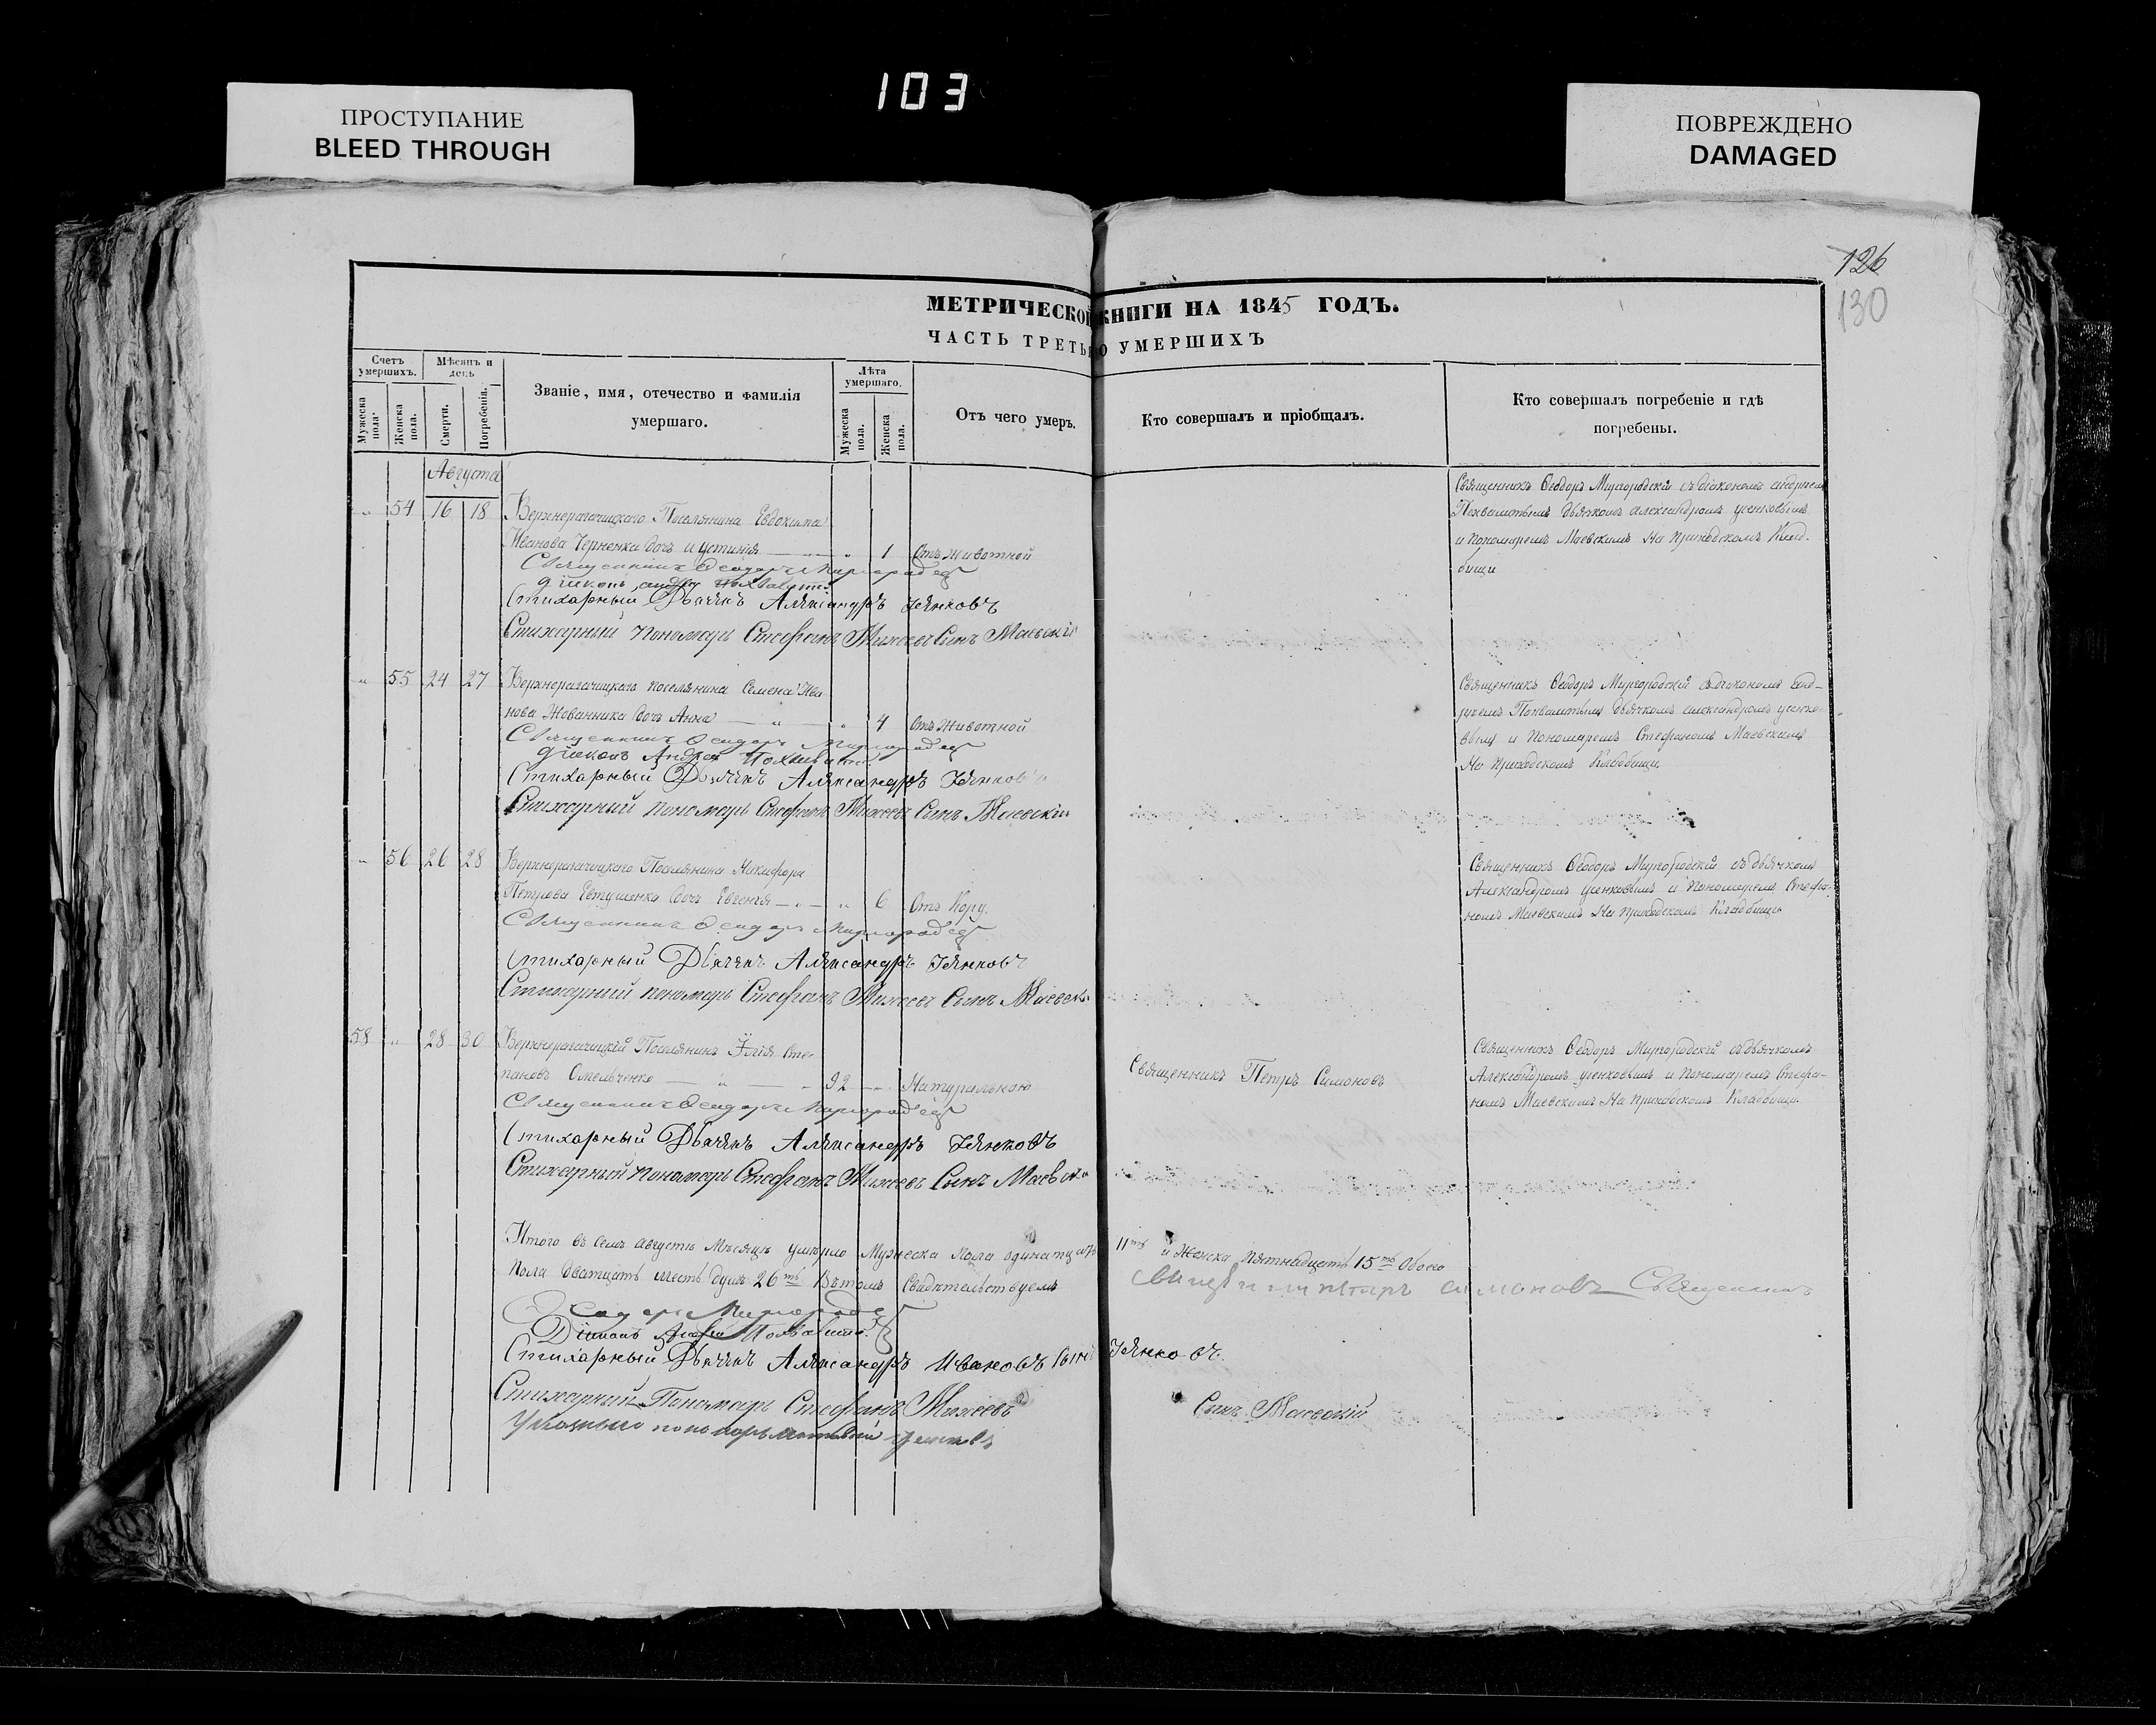 103
ПРОСТУПАНИЕ
BLEED THROUGH
ПОВРЕЖДЕНО
DAMAGED
126
130
МЕТРИЧЕСКОЙ КНИГИ НА 1845 ГОДЪ.
ЧАСТЬ ТРЕТЬЯ О УМЕРШИХЪ
Счетъ умершихъ.
Мужеска пола.
Женска пола.
Мѣсяцъ и день
Смерти.
Погребенія.
Званіе, имя, отечество и фамилія
умершаго.
Лѣта умершаго.
Мужеска пола.
Женска пола.
Отъ чего умеръ.
Кто совершалъ и пріобщалъ.
Кто совершалъ погребеніе и гдѣ
погребены.
Августа
" 54 16 18 Верхнерагачицкого Поселянина Евдокима
Иванова Черненка дочь Иустинія " 1 Отъ животной
Священникъ Феодоръ Миргородскій
Діаконъ Андрей Похвалитый
Стихарный Дьячекъ Александръ Усенковъ
Стихарный пономарь Стефанъ Михеевъ Сынъ Маевскій
Священникъ Феодоръ Миргородскій съ діакономъ Андреем
Похвалитымъ дьячкомъ Александромъ Усенковымъ
и пономаремъ Маевскимъ На приходскомъ Клад-
бищи
" 55 24 27 Верхнерагачицкого поселянина Семена Ива
нова Жованника дочь Анна " " 4 Отъ Животной
Священникъ Феодоръ Миргородскій
Діаконъ Андрей Похвалитый
Стихарный Дьячекъ Александръ Усенковъ
Стихарный пономарь Стефанъ Михеевъ Сынъ Маевскій
Священникъ Феодоръ Миргородскій съ діакономъ Анд-
реемъ Похвалитымъ дьячкомъ Александромъ Усенко-
вымъ и Пономаремъ Стефаномъ Маевскимъ
На приходскомъ Кладбищи.
" 56 26 28 Верхнерагачицкого Поселянина Никифора
Петрова Евтушенка дочь Евгенія " " 6 Отъ Кору.
Священникъ Феодоръ Миргородскій
Стихарный Дьячекъ Александръ Усенковъ
Стихарный пономарь Стефанъ Михеевъ Сынъ Маевск
Священникъ Феодоръ Миргородскій съ дьячкомъ
Александромъ Усенковымъ и Пономаремъ Стефа-
номъ Маевскимъ На приходскомъ Кладбищи
58 " 28 30 Верхнерагачицкій Поселянинъ Илія Сте-
пановъ Омельченко " 92 " Натуральною
Священникъ Феодоръ Миргородскій
Стихарный Дьячекъ Александръ Усенковъ
Стихарный Пономарь Стефанъ Михеевъ Сынъ Маевск
Священникъ Петръ Симоновъ
Священникъ Феодоръ Миргородскій съ дьячкомъ
Александромъ Усенковымъ и Пономаремъ Стефа-
номъ Маевскимъ На приходскомъ Кладбищи.
Итого въ семъ августѣ Мѣсяцѣ умерло Мужеска пола одинатцать 11ть и Женска пятнадцать 15ть Обоего
пола дватцать шесть душъ 26ть Въ томъ Свидѣтельствуемъ Священникъ Петръ Симоновъ Священникъ
Феодоръ Миргородскій
Діаконъ Андрей Похвалитый
Стихарный Дьячекъ Александръ Ивановъ сынъ Усенковъ.
Стихарный Пономарь Стефанъ Михеевъ Сынъ Маевскій